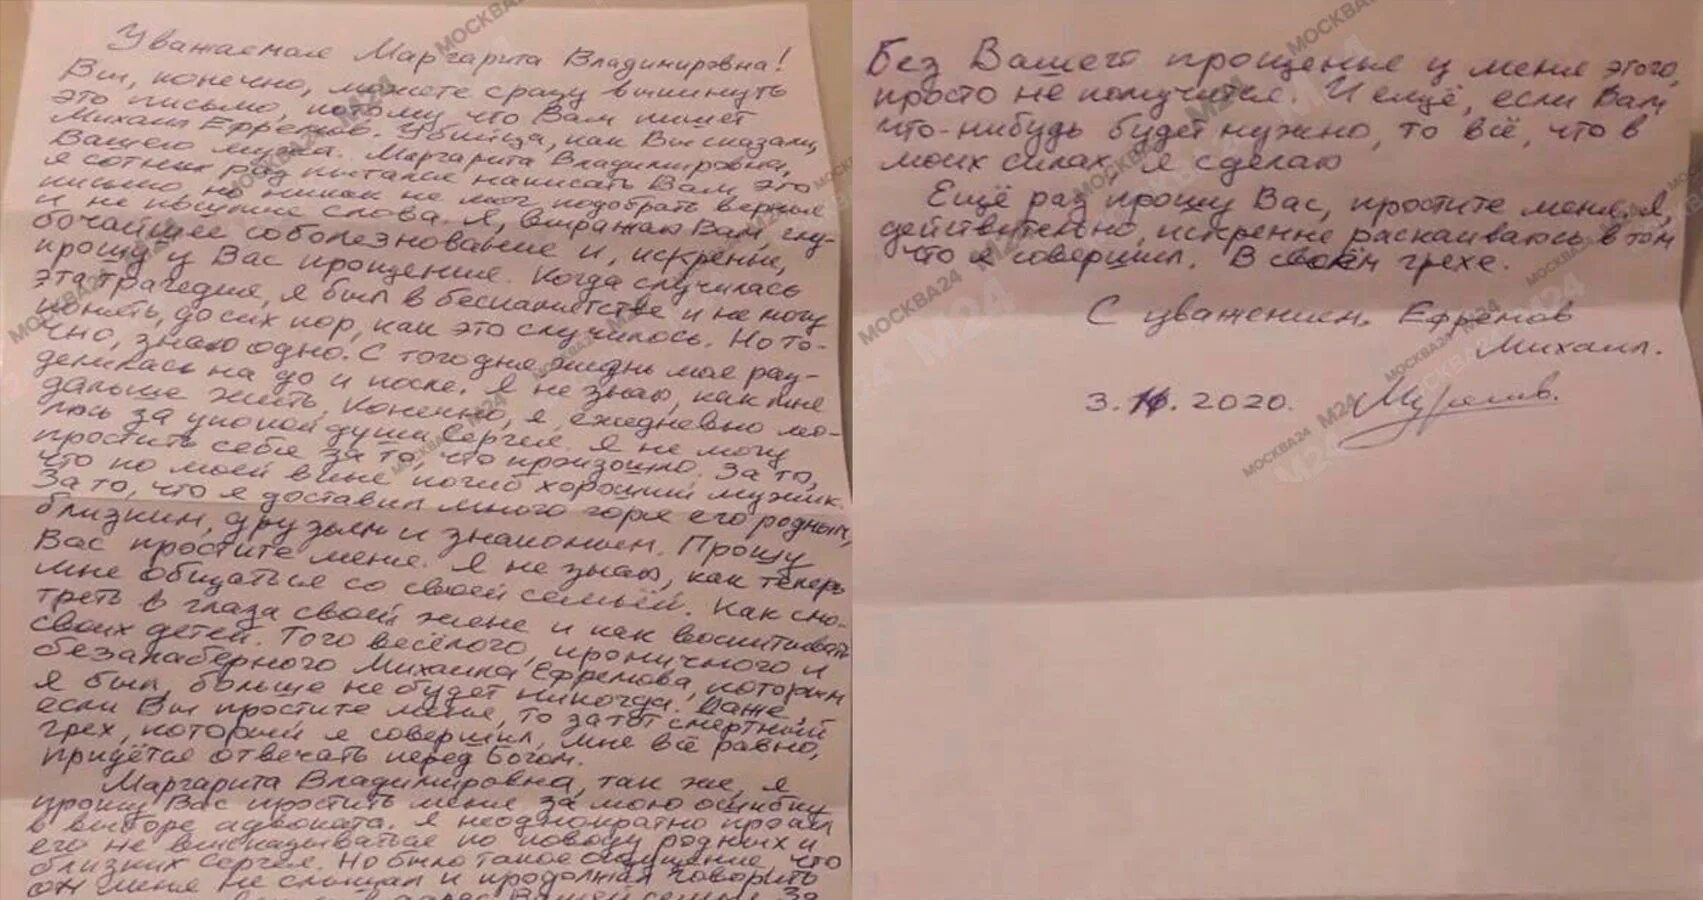 Уважаемая Маргарита Владимировна!
Вы, конечно, можете сразу выкинуть
это письмо, потому что Вам пишет
Михаил Ефремов. Убийца, как Вы сказали,
Вашего мужа. Маргарита Владимировна,
я сотни раз пытался написать Вам это
письмо, но никак не мог подобрать верные
и не пышные слова. Я, выражаю Вам, глу-
бочайшее соболезнование и, искренне,
прошу у Вас прощение. Когда случилась
эта трагедия, я был в беспамятстве и не могу
понять, до сих пор, как это случилось. Но то-
чно, знаю одно. С того дня, жизнь моя раз-
делилась на до и после. Я не знаю, как мне
дальше жить. Конечно, я, ежедневно мо-
люсь за упокой души Сергея. Я не могу
простить себя за то, что произошло. За то,
что по моей вине погиб хороший мужик.
За то, что я доставил много горя его родным,
близким, друзьям и знакомым. Прошу
Вас простите меня. Я не знаю, как теперь
мне общаться со своей семьёй. Как смо-
треть в глаза своей жене и как воспитывать
своих детей. Того весёлого, ироничного и
безалаберного Михаила Ефремова, которым
я был, больше не будет никогда. Даже,
если Вы простите меня, то за тот смертный
грех, который я совершил, мне всё равно,
придётся отвечать перед Богом.
Маргарита Владимировна, так же, я
прошу Вас простить меня за мою ошибку
в выборе адвоката. Я неоднократно просил
его не высказываться по поводу родных и
близких Сергея. Но было такое ощущение, что
он меня не слышал и продолжал говорить
в адрес Вашей семьи. За
Без Вашего прощенье у меня этого,
просто не получится. И ещё, если Вам
что-нибудь будет нужно, то всё, что в
моих силах, я сделаю
Ещё раз прошу Вас, простите меня. Я,
действительно, искренне раскаиваюсь в том
что я совершил. В своём грехе.
С уважением, Ефремов
Михаил.
3. 2020.
МОСКВА24
М24